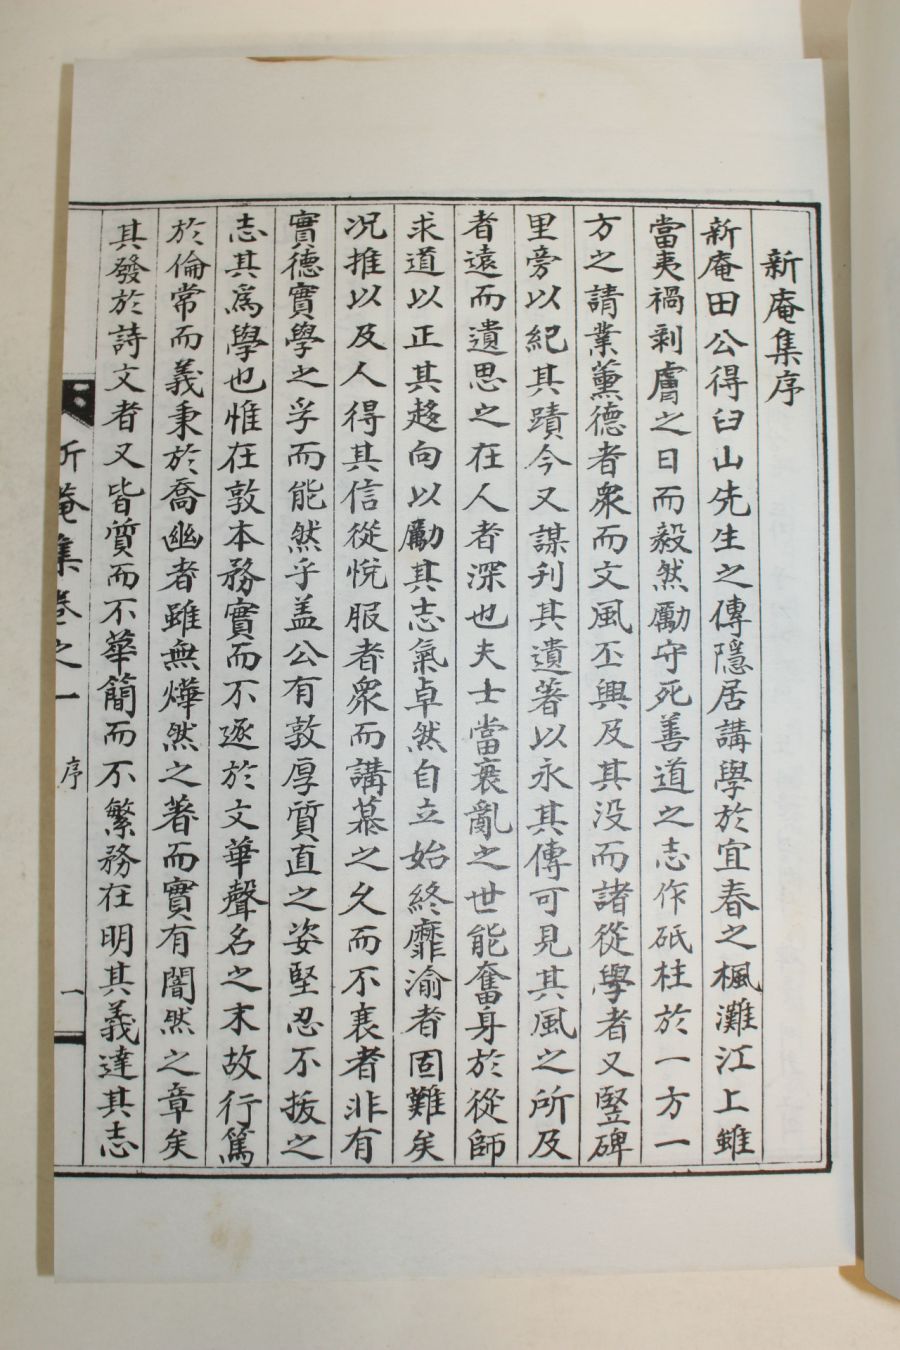 新庵集序
新庵田公得臼山先生之傳隱居講學於宜春之楓灘江上雖
當夷禍剥膚之日而毅然勵守死善道之志作砥柱於一方一
方之請業薰德者衆而文風丕興及其没而諸從學者又竪碑
里旁以紀其蹟今又謀刋其遺著以永其傳可見其風之所及
者遠而遺思之在人者深也夫士當衰亂之世能奮身於從師
求道以正其趍向以勵其志氣卓然自立始終靡渝者固難矣
况推以及人得其信從悅服者衆而講慕之久而不衰者非有
實德實學之孚而能然乎盖公有敦厚質直之姿堅忍不拔之
志其爲學也惟在敦本務實而不逐於文華聲名之末故行篤
於倫常而義秉於喬幽者雖無燁然之著而實有闇然之章矣
其發於詩文者又皆質而不華簡而不繁務在明其義達其志
新庵集卷之一
序
一